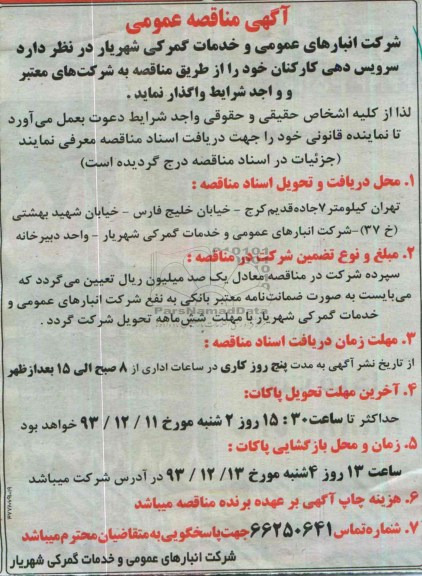 آگهی مناقصه عمومی
شرکت انبارهای عمومی و خدمات گمرکی شهریار در نظر دارد
سرویس دهی کارکنان خود را از طریق مناقصه به شرکت‌های معتبر
و و اجد شرایط واگذار نماید .
لذا از کلیه اشخاص حقیقی و حقوقی واجد شرایط دعوت بعمل می‌آورد
تا نماینده قانونی خود را جهت دریافت اسناد مناقصه معرفی نمایند
(جزئیات در اسناد مناقصه درج گردیده است)
۱. محل دریافت و تحویل اسناد مناقصه :
تهران کیلومتر۷جاده‌قدیم‌کرج - خیابان خلیج فارس - خیابان شهید بهشتی
(خ ۳۷)-شرکت انبارهای عمومی و خدمات گمرکی شهریار - واحد دبیرخانه
۲. مبلغ و نوع تضمین شرکت در مناقصه :
سپرده شرکت در مناقصه معادل یک صد میلیون ریال تعیین می‌گردد که
می‌بایست به صورت ضمانت‌نامه معتبر بانکی به نفع شرکت انبارهای عمومی و
خدمات گمرکی شهریار با مهلت شش‌ماهه تحویل شرکت گردد .
ParsNamadData
۳. مهلت زمان دریافت اسناد مناقصه :
از تاریخ نشر آگهی به مدت پنج روز کاری در ساعات اداری از ۸ صبح الی ۱۵ بعدازظهر
۴. آخرین مهلت تحویل پاکات:
حداکثر تا ساعت ۳۰ : ۱۵ روز ۲ شنبه مورخ ۱۱ / ۱۲ / ۹۳ خواهد بود
۵. زمان و محل بازگشایی پاکات :
ساعت ۱۳ روز ۴شنبه مورخ ۱۳/ ۱۲ / ۹۳ در آدرس شرکت میباشد
۶. هزینه چاپ آگهی بر عهده برنده مناقصه میباشد
۷. شماره تماس ۶۶۲۵۰۶۴۱ جهت پاسخگویی به متقاضیان محترم میباشد
شرکت انبارهای عمومی و خدمات گمرکی شهریار